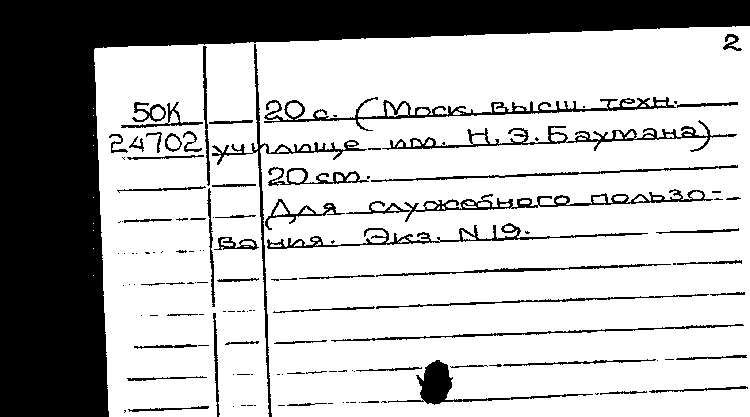 2
50К 20 с. (Моск. высш. техн.
24702 училище им. Н.Э.Баумана)
20 см.
Для служебного пользо-
вания. Экз. N 19.